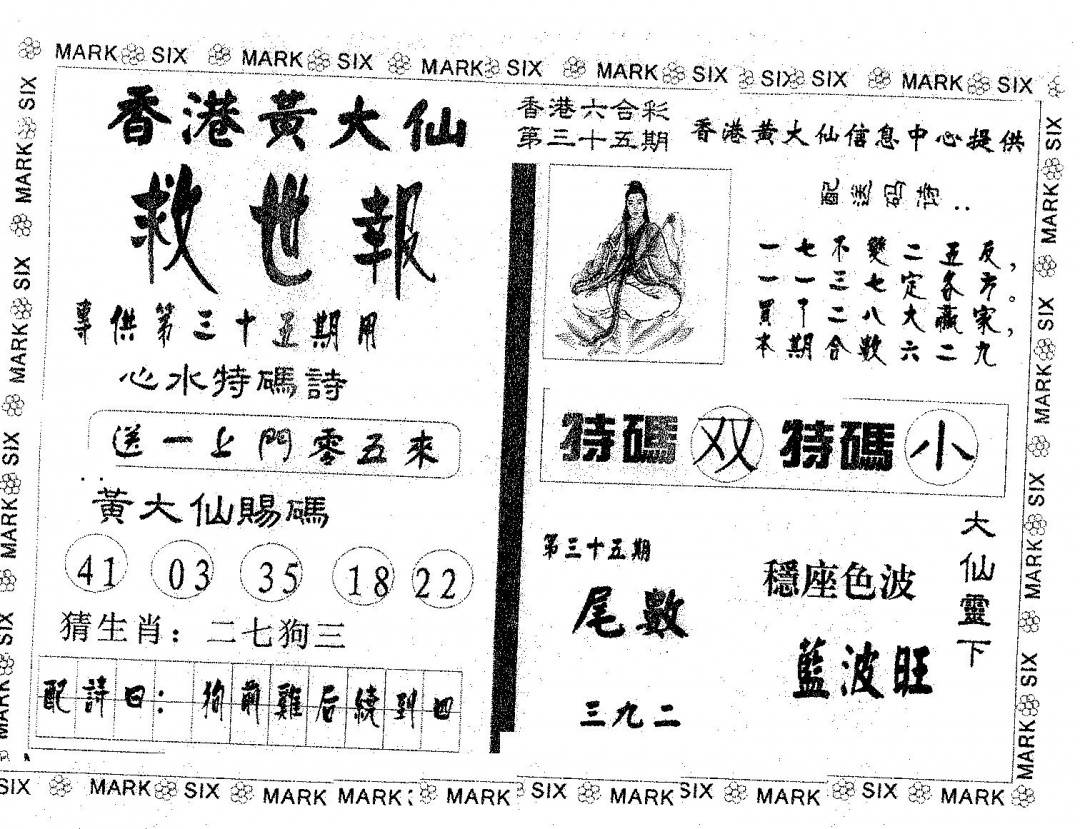 MARK SIX MARK SIX MARK SIX MARK SIX SIX SIX MARK SIX
香港黃大仙
救世報
專供第三十五期用
心水特碼詩
送一上門零五來
黃大仙賜碼
41 03 35 18 22
猜生肖：二七狗三
配詩曰：狗前雞后繞到四
香港六合彩
第三十五期
香港黄大仙信息中心提供
配送码诗：
一七不變二五反，
一一三七定多方。
買了二八大贏家，
本期合數六二九
特碼双特碼小
第三十五期
尾數
三九二
穩座色波
藍波旺
大仙靈下
MARK SIX MARK SIX MARK SIX MARK SIX
MARK SIX MARK SIX MARK SIX MARK SIX
SIX MARK SIX MARK MARK MARK SIX MARK SIX MARK SIX MARK